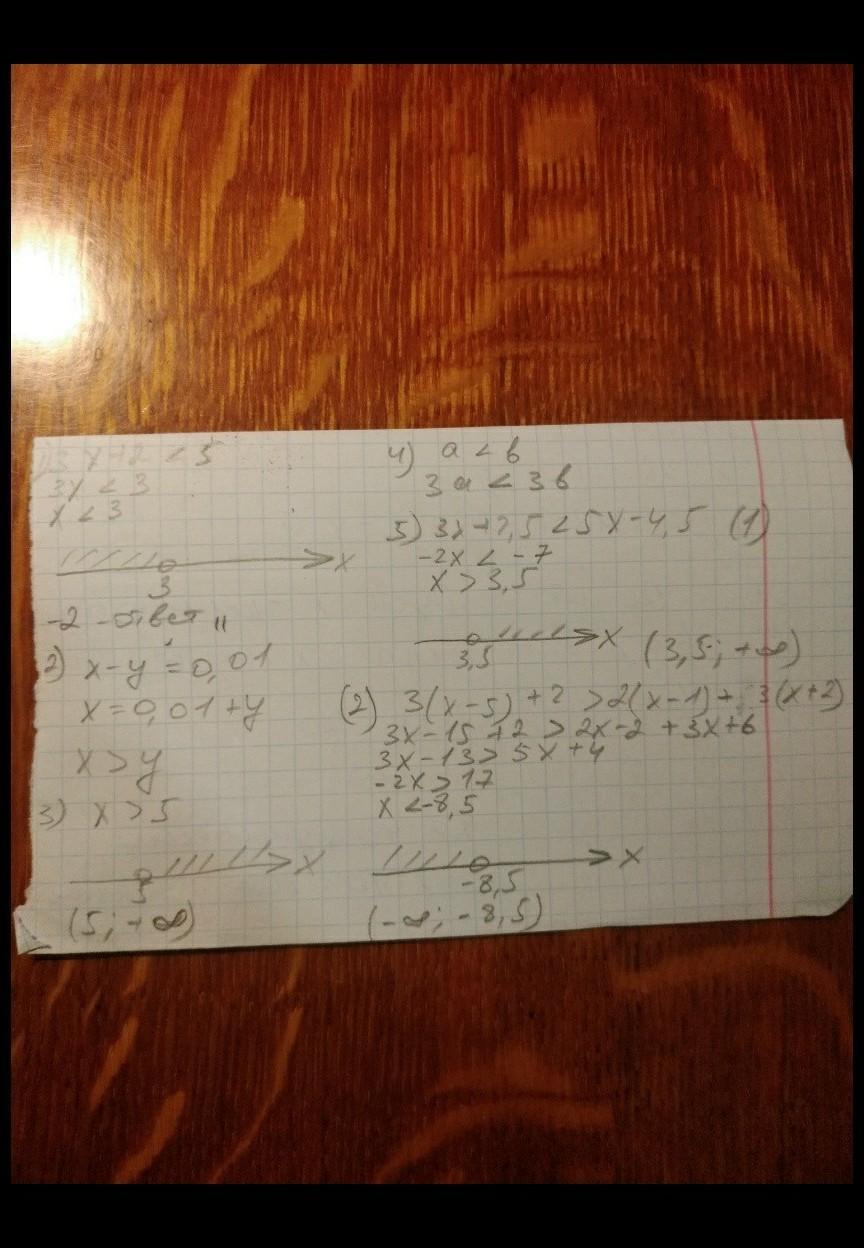 1) 3x+2 < 5
3x < 3
x < 3
x
3
-2 - ответ
2) x-y = 0,01
x = 0,01 + y
x > y
3) x > 5
x
5
(5; +∞)
4) a < b
3a < 3b
5) 3x+2,5 < 5x-4,5 (1)
-2x < -7
x > 3,5
x (3,5; +∞)
3,5
(2) 3(x-5) + 2 > 2(x-1) + 3(x+2)
3x-15+2 > 2x-2 + 3x+6
3x-13 > 5x+4
-2x > 17
x < -8,5
x
-8,5
(-∞; -8,5)